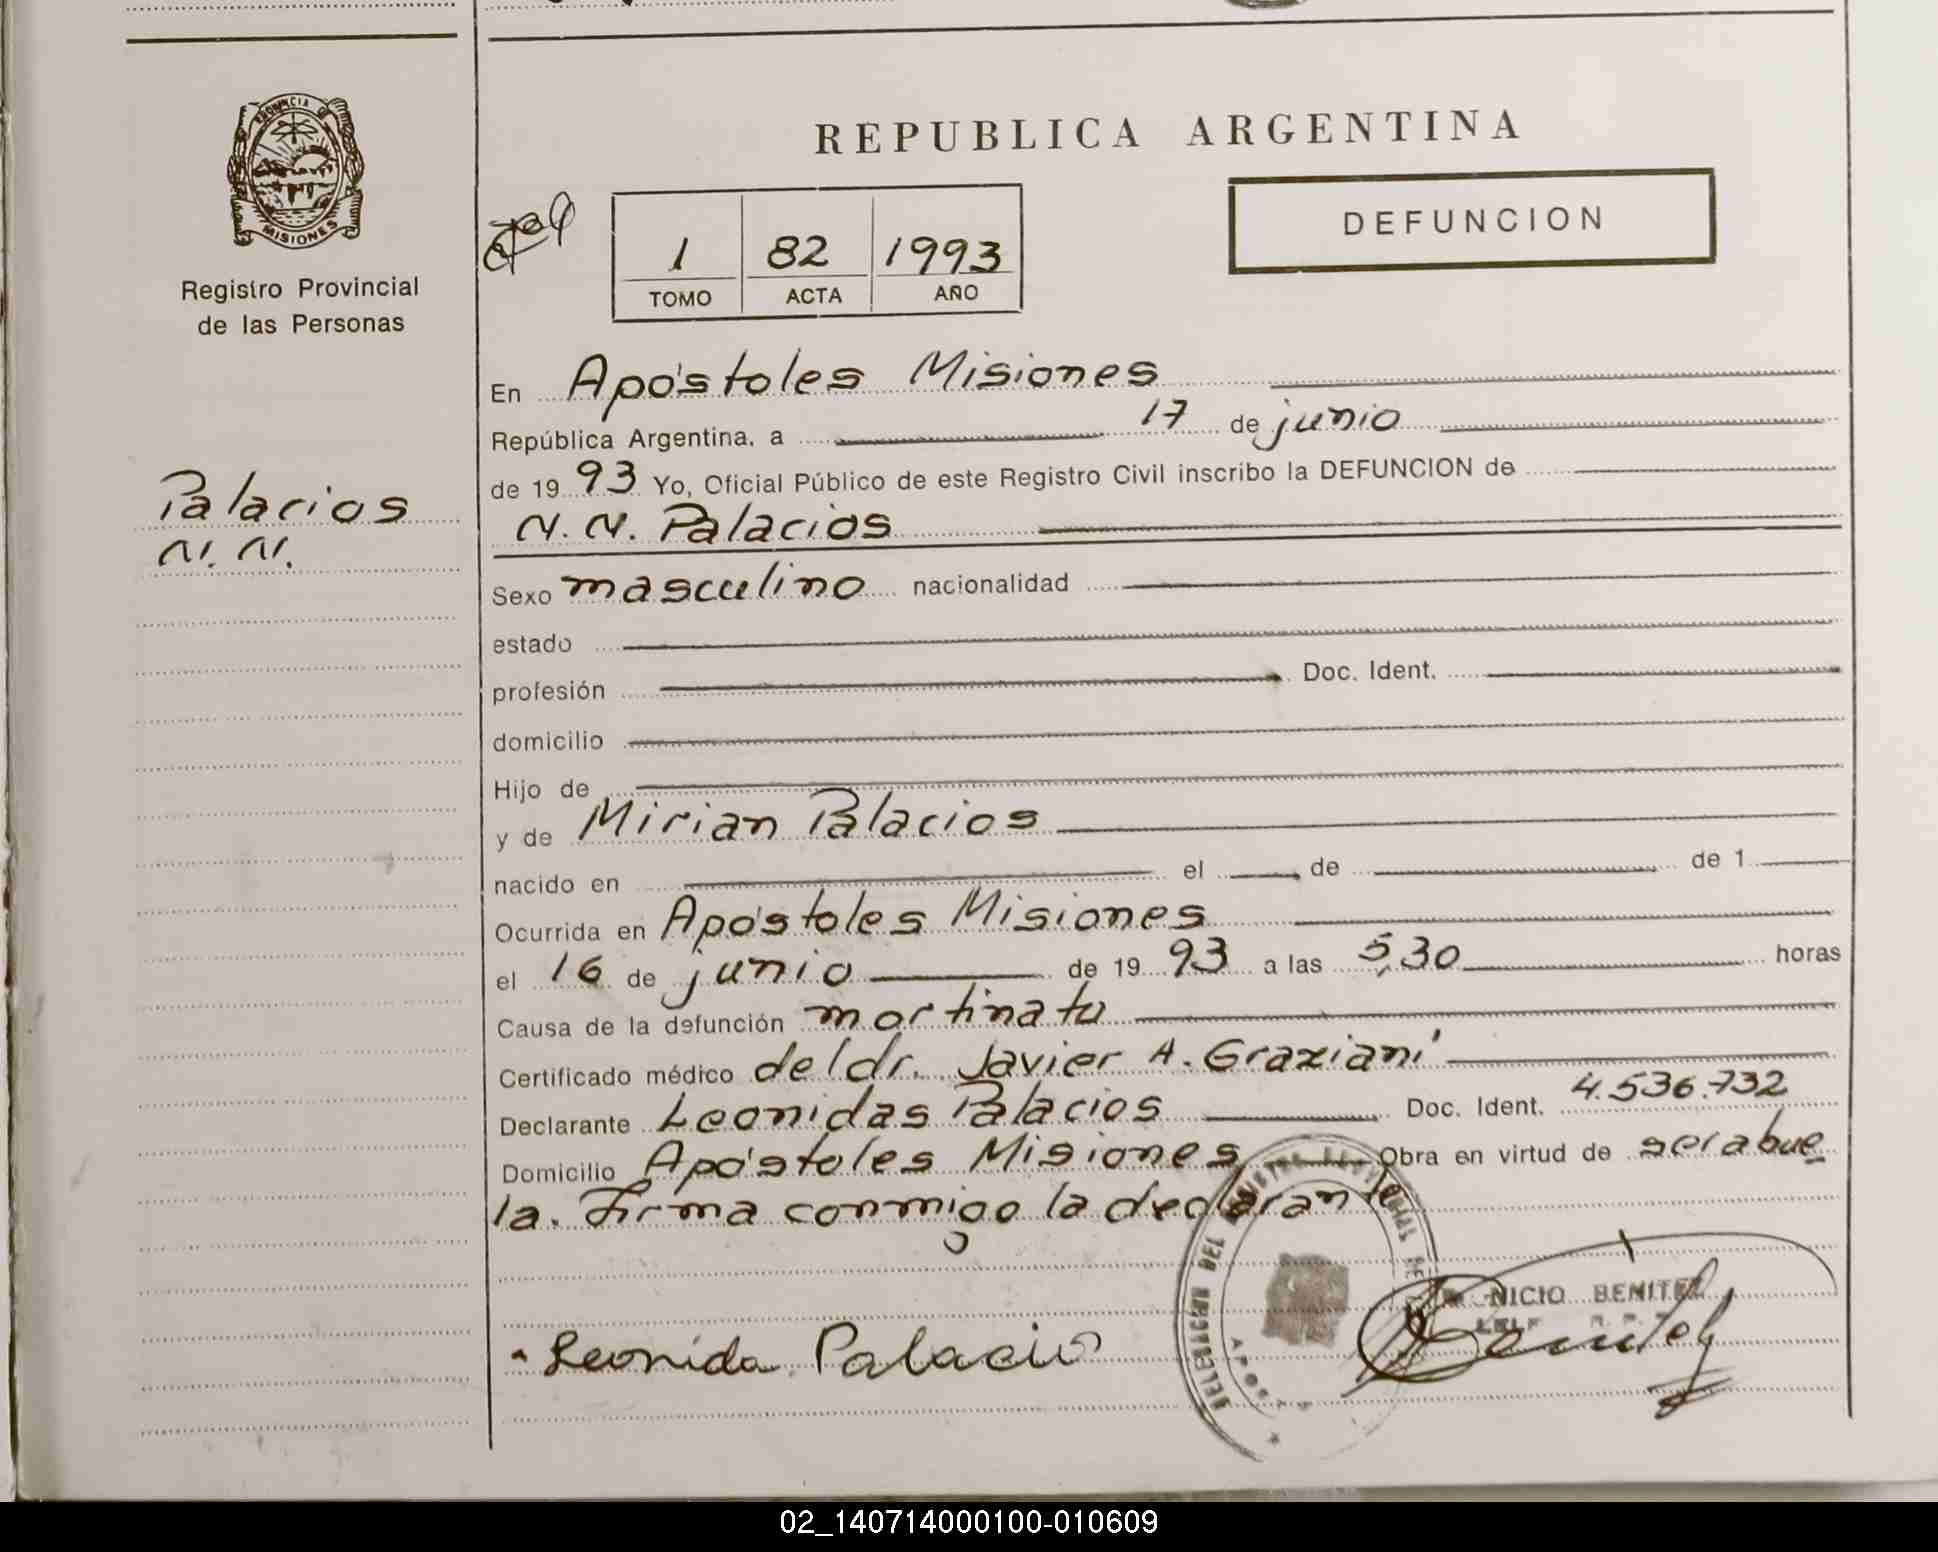 PROVINCIA DE
MISIONES
Registro Provincial
de las Personas
Palacios
N. N.
REPUBLICA ARGENTINA
1 82 1993
TOMO ACTA AÑO
DEFUNCION
En Apóstoles Misiones
República Argentina, a 17 de junio
de 1993 Yo, Oficial Público de este Registro Civil inscribo la DEFUNCION de
N. N. Palacios
Sexo masculino nacionalidad
estado
profesión Doc. Ident.
domicilio
Hijo de
y de Mirian Palacios
nacido en el de de 1
Ocurrida en Apóstoles Misiones
el 16 de junio de 1993 a las 5,30 horas
Causa de la defunción mortinato
Certificado médico del dr. Javier A. Graziani
Declarante Leonidas Palacios Doc. Ident. 4.536.732
Domicilio Apóstoles Misiones Obra en virtud de ser abue
la. Firma conmigo la declarante
DELEGACION DEL
NICIO BENITEZ
Leonida Palacio
02_140714000100-010609